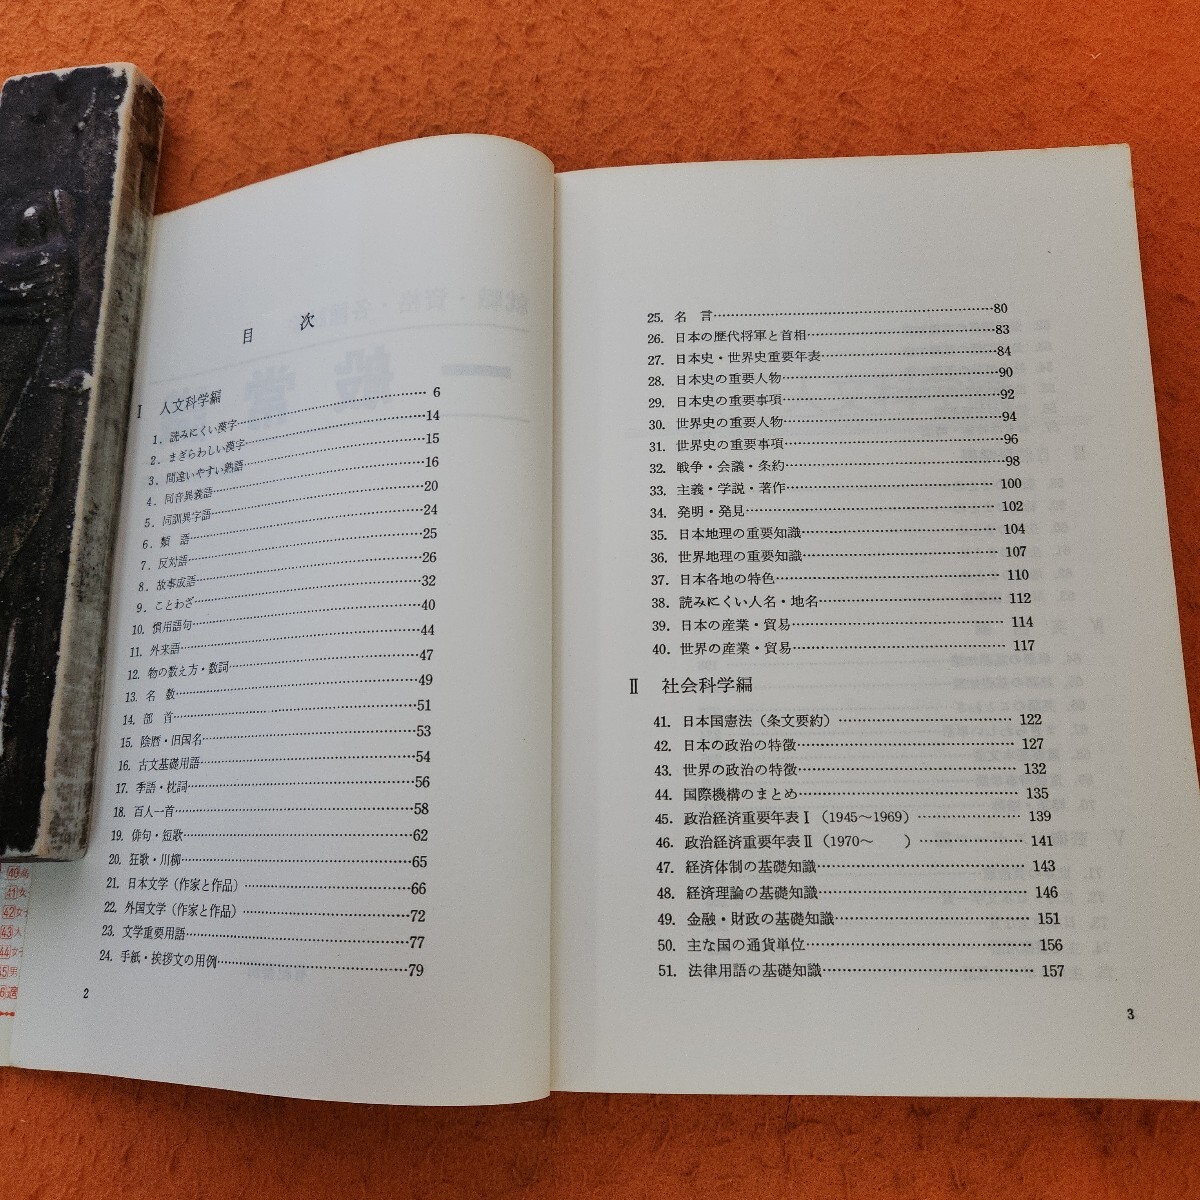 目 次
Ⅰ 人文科学編
1. 読みにくい漢字……6
2. まぎらわしい漢字……14
3. 間違いやすい熟語……15
4. 同音異義語……16
5. 同訓異字語……20
6. 類 語……24
7. 反対語……25
8. 故事成語……26
9. ことわざ……32
10. 慣用語句……40
11. 外来語……44
12. 物の数え方・数詞……47
13. 名 数……49
14. 部 首……51
15. 陰暦・旧国名……53
16. 古文基礎用語……54
17. 季語・枕詞……56
18. 百人一首……58
19. 俳句・短歌……62
20. 狂歌・川柳……65
21. 日本文学（作家と作品）……66
22. 外国文学（作家と作品）……72
23. 文学重要用語……77
24. 手紙・挨拶文の用例……79
2
25. 名 言……80
26. 日本の歴代将軍と首相……83
27. 日本史・世界史重要年表……84
28. 日本史の重要人物……90
29. 日本史の重要事項……92
30. 世界史の重要人物……94
31. 世界史の重要事項……96
32. 戦争・会議・条約……98
33. 主義・学説・著作……100
34. 発明・発見……102
35. 日本地理の重要知識……104
36. 世界地理の重要知識……107
37. 日本各地の特色……110
38. 読みにくい人名・地名……112
39. 日本の産業・貿易……114
40. 世界の産業・貿易……117
Ⅱ 社会科学編
41. 日本国憲法（条文要約）……122
42. 日本の政治の特徴……127
43. 世界の政治の特徴……132
44. 国際機構のまとめ……135
45. 政治経済重要年表Ⅰ（1945〜1969）……139
46. 政治経済重要年表Ⅱ（1970〜　　）……141
47. 経済体制の基礎知識……143
48. 経済理論の基礎知識……146
49. 金融・財政の基礎知識……151
50. 主な国の通貨単位……156
51. 法律用語の基礎知識……157
3